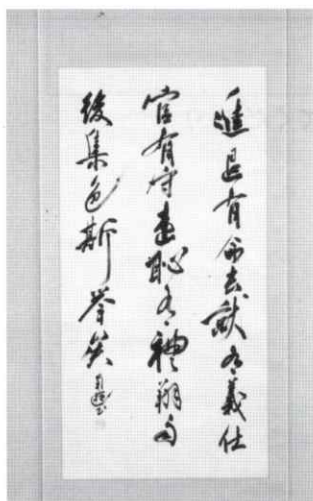 進退有命去就有義仕
宦有守遠恥有禮翔而
後集色斯舉矣